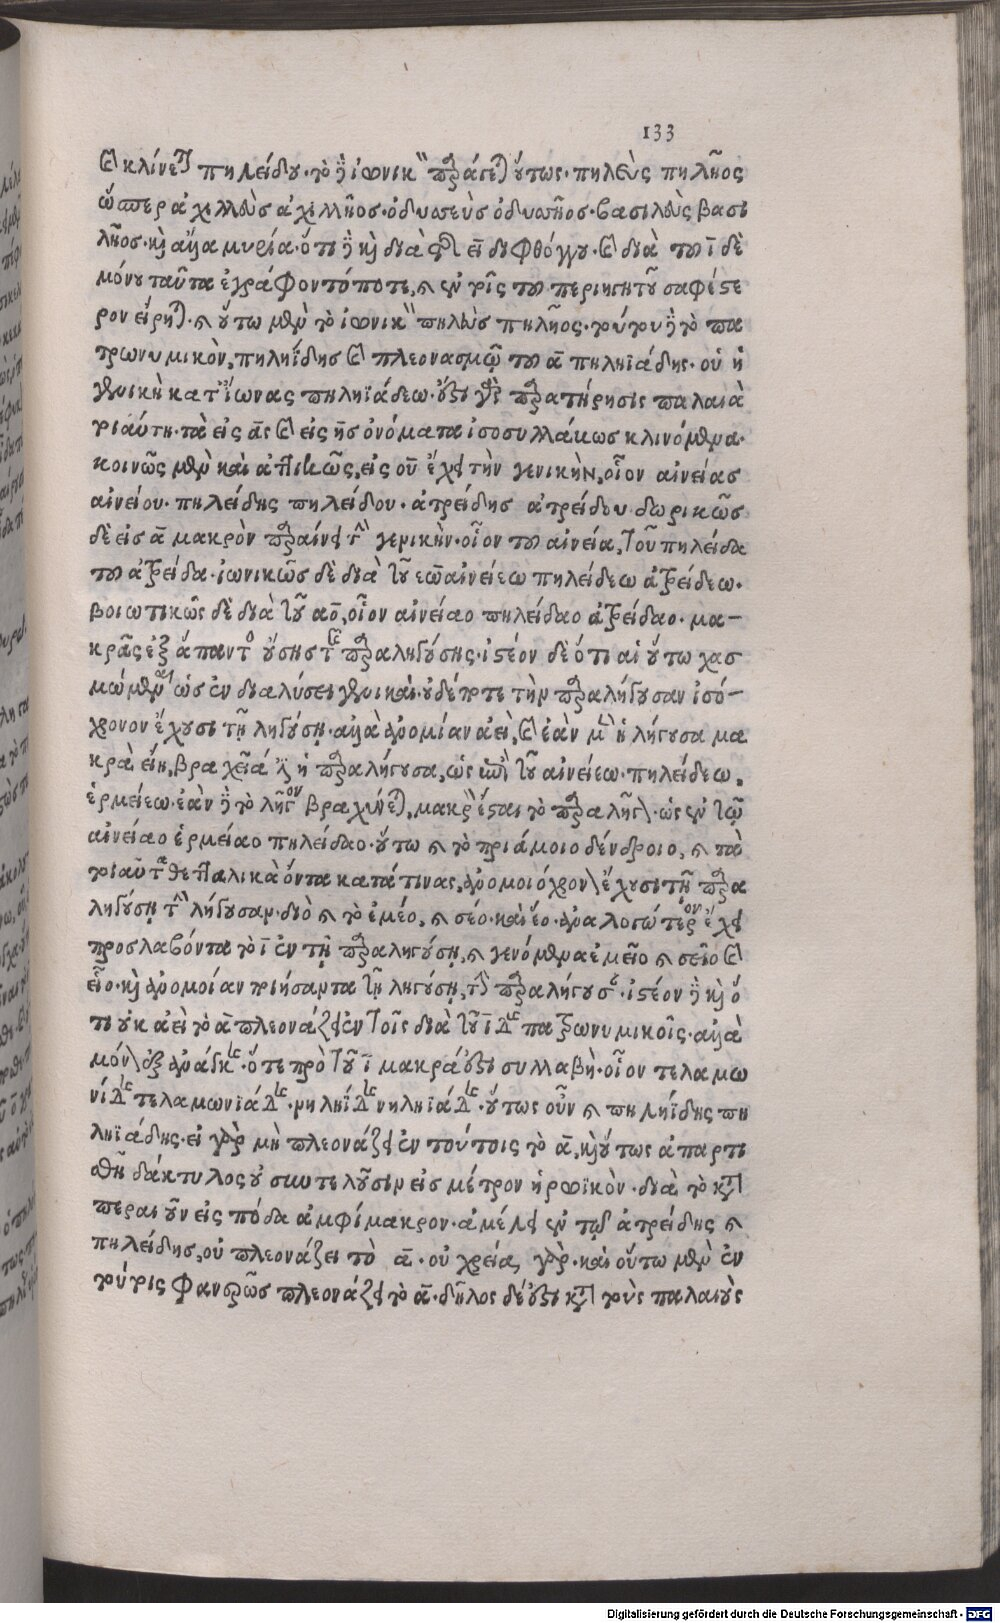 133
καὶ κλίνεται πηλείδου· τὸ δὲ ἰωνικὸν παράγεται οὕτως· πηλεὺς πηλῆος
ὥσπερ ἀχιλλεὺσ ἀχιλλῆος· ὀδυσσεὺσ ὀδυσσῆος· βασιλεὺς βασι
λῆος· καὶ ἄλλα μυρία· ὅτι δὲ καὶ διὰ τῆς ει διφθόγγου· καὶ διὰ του ι δὲ
μόνου ταῦτα ἐγράφοντό ποτε, καὶ ἐν τοῖς του περιηγητοῦ σαφέστε
ρον εἴρηται· καὶ οὕτω μὲν τὸ ἰωνικὸν πηλεὺσ πηλῆος· τούτου δὲ τὸ πα
τρωνυμικὸν, πηληΐδησ καὶ πλεονασμῶ του α πηληϊάδης· οὗ ἡ
γενικὴ κατ' ἴωνας πηληϊάδεω· ἔστι γὰρ παρατήρησις παλαιὰ
τοιαύτη· τὰ εἰς ας καὶ εἰς ησ ὀνόματα ἰσοσυλλάβωσ κλινόμενα·
κοινῶς μὲν καὶ ἀττικῶς, εἰς ου ἔχει τὴν γενικὴν, οἷον αἰνείασ
αἰνείου· πηλείδης πηλείδου· ἀτρείδησ ἀτρείδου· δωρικῶσ
δὲ εἰσ α μακρὸν περαίνει τὴν γενικὴν· οἷον του αἰνεία, τοῦ πηλείδα
του ἀτρείδα· ἰωνικῶσ δὲ διὰ τοῦ εω αἰνείεω πηλείδεω ἀτρείδεω·
βοιωτικῶς δὲ διὰ τοῦ αο, οἷον αἰνείαο πηλείδαο ἀτρείδαο· μα-
κρᾶς ἐξ ἅπαντος οὔσησ τῆς παραληγούσης· ἰστέον δὲ ὅτι αἱ οὕτω χασ
μώμεναι ὡσ ἐν διαλύσει γενικαὶ, οὐδέποτε τὴν παραλήγουσαν ἰσό-
χρονον ἔχουσι τῆ ληγούση· ἀλλὰ ἀνομίαν ἀεὶ, καὶ ἐὰν μὲν ἡ λήγουσα μα
κρὰ εἴη, βραχεῖά ἐστιν ἡ παραλήγουσα, ὡς ἐπὶ τοῦ αἰνείεω· πηλείδεω,
ἑρμείεω· ἐὰν δὲ τὸ λῆγον βραχύνεται, μακρὸν ἔσται τὸ παραλῆγον· ὡς ἐν τῶ
αἰνείαο ἑρμείαο πηλείδαο· οὕτω καὶ τὸ πριάμοιο δένδροιο, καὶ τὰ
τοιαῦτα θετταλικὰ ὄντα κατά τινας, ἀνομοιόχρονον ἔχουσι τῆ παρα
ληγούση τὴν λήγουσαν· διὸ καὶ τὸ ἐμέο, καὶ σέο· καὶ ἕο· ἀναλογώτερον ἔχει
προσλαβόντα τὸ ι ἐν τῆ παραληγούση, καὶ γενόμενα ἐμεῖο καὶ σεῖο καὶ
εἷο· καὶ ἀνομοίαν ποιήσαντα τῆ ληγούση, τὴν παραλήγουσαν· ἰστέον δὲ καὶ ὅ
τι οὐκ ἀεὶ τὸ α πλεονάζει ἐν τοῖς διὰ τοῦ ι δης πατρωνυμικοῖς· ἀλλὰ
μόνον ἐξ ἀνάγκης· ὅτε πρὸ τοῦ ι μακρά ἔστι συλλαβὴ· οἷον τελαμω
νίδης τελαμωνιάδης· νηληΐδης νηληϊάδης· οὕτως οὖν καὶ πηληΐδης πη
ληϊάδης· εἰ γὰρ μὴ πλεονάζει ἐν τούτοις τὸ α, καὶ οὕτως ἀπαρτι
σθῆ δάκτυλος οὐ συντελοῦσιν εἰσ μέτρον ἡρωϊκὸν· διὰ τὸ κατα
περαιοῦν εἰς πόδα ἀμφίμακρον· ἀμέλει ἐν τῷ ἀτρείδης καὶ
πηλείδησ, οὐ πλεονάζει τὸ α· οὐ χρεία γὰρ· καὶ οὕτω μὲν ἐν
τούτοις φανερῶσ πλεονάζει τὸ α· δῆλος δέ ἔστι κατὰ τοὺς παλαιοὺς
Digitalisierung gefördert durch die Deutsche Forschungsgemeinschaft · DFG